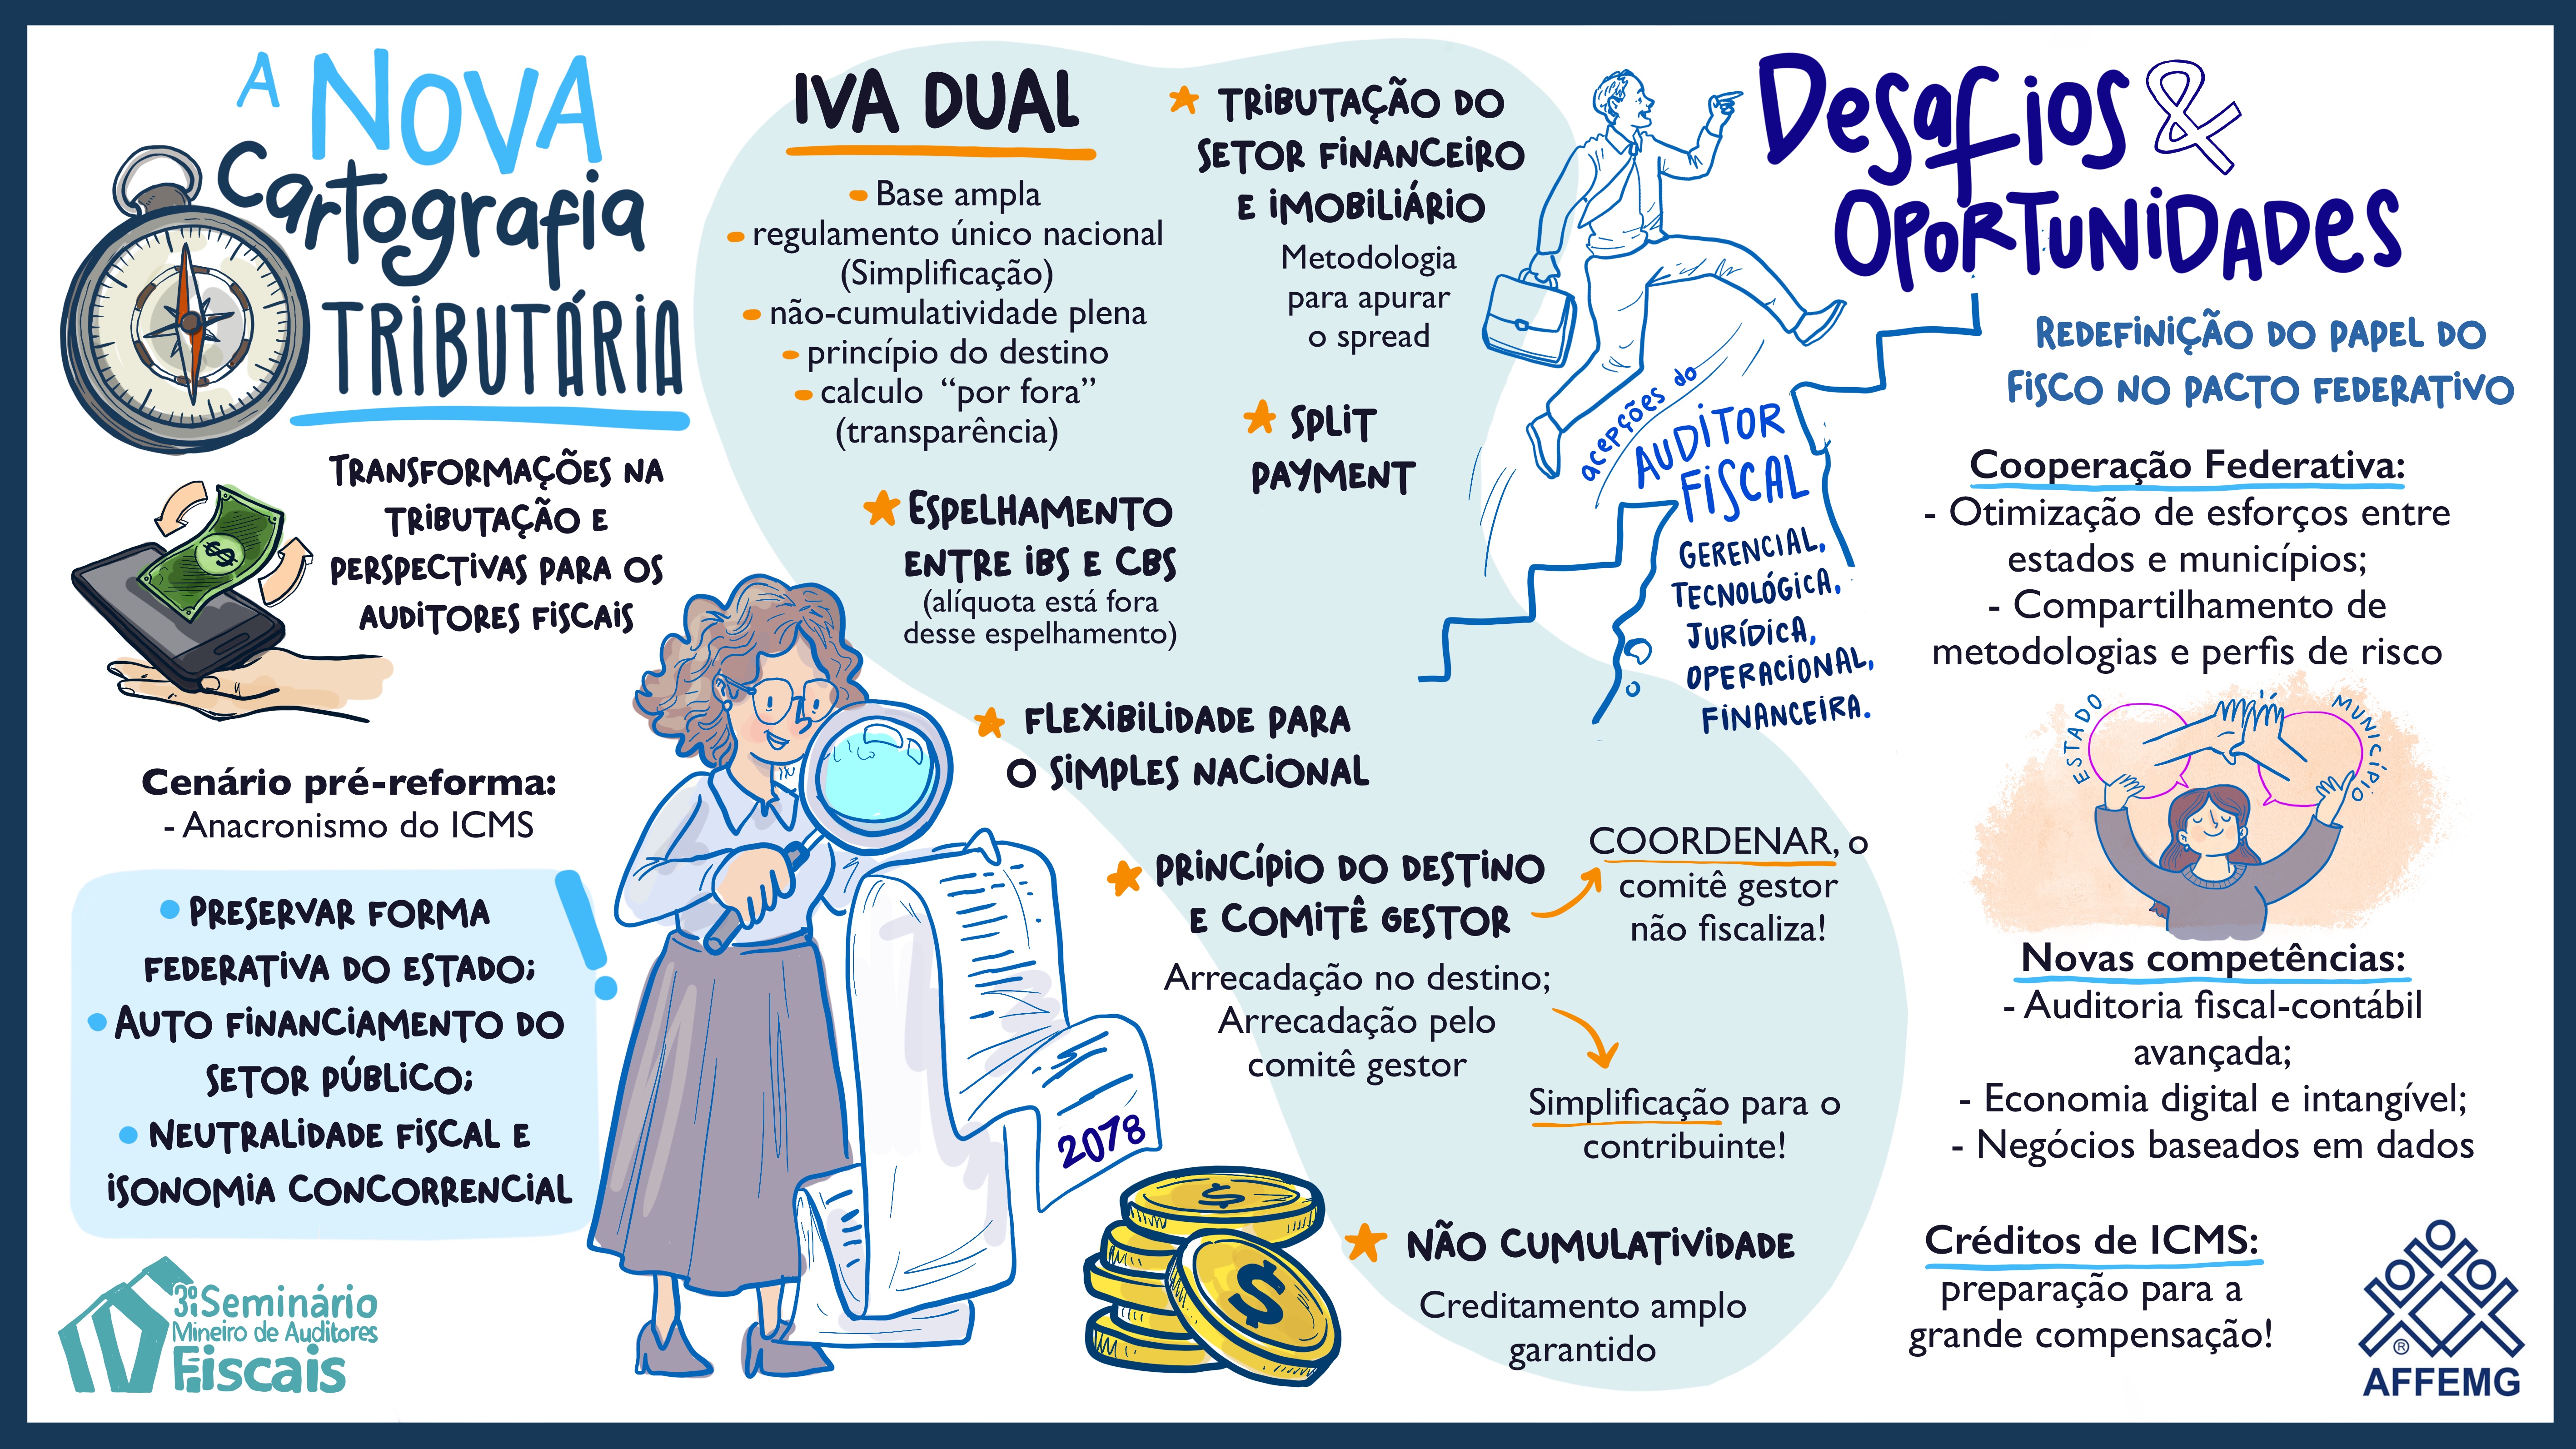 A NOVA
Cartografia
TRIBUTÁRIA
TRANSFORMAÇÕES NA
TRIBUTAÇÃO E
PERSPECTIVAS PARA OS
AUDITORES FISCAIS
Cenário pré-reforma:
- Anacronismo do ICMS
• PRESERVAR FORMA
FEDERATIVA DO ESTADO;
• AUTO FINANCIAMENTO DO
SETOR PÚBLICO;
• NEUTRALIDADE FISCAL E
ISONOMIA CONCORRENCIAL
!
3º Seminário
Mineiro de Auditores
Fiscais
IVA DUAL
- Base ampla
- regulamento único nacional
(Simplificação)
- não-cumulatividade plena
- princípio do destino
- calculo “por fora”
(transparência)
ESPELHAMENTO
ENTRE IBS E CBS
(alíquota está fora
desse espelhamento)
TRIBUTAÇÃO DO
SETOR FINANCEIRO
E IMOBILIÁRIO
Metodologia
para apurar
o spread
SPLIT
PAYMENT
FLEXIBILIDADE PARA
O SIMPLES NACIONAL
PRINCÍPIO DO DESTINO
E COMITÊ GESTOR
COORDENAR, o
comitê gestor
não fiscaliza!
Arrecadação no destino;
Arrecadação pelo
comitê gestor
Simplificação para o
contribuinte!
2078
$
$
$
NÃO CUMULATIVIDADE
Creditamento amplo
garantido
Desafios &
OPORTUNIDADES
acepções do
AUDITOR
FISCAL
GERENCIAL,
TECNOLÓGICA,
JURÍDICA,
OPERACIONAL,
FINANCEIRA.
REDEFINIÇÃO DO PAPEL DO
FISCO NO PACTO FEDERATIVO
Cooperação Federativa:
- Otimização de esforços entre
estados e municípios;
- Compartilhamento de
metodologias e perfis de risco
ESTADO
MUNICÍPIO
Novas competências:
- Auditoria fiscal-contábil
avançada;
- Economia digital e intangível;
- Negócios baseados em dados
Créditos de ICMS:
preparação para a
grande compensação!
®
AFFEMG